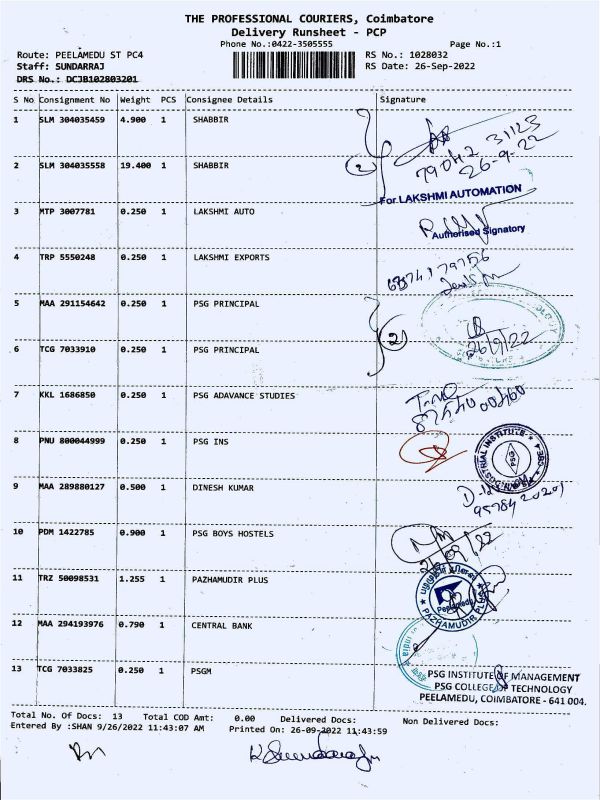 THE PROFESSIONAL COURIERS, Coimbatore
Delivery Runsheet - PCP
Phone No.:0422-3505555 Page No.:1
Route: PEELAMEDU ST PC4 RS No.: 1028032
Staff: SUNDARRAJ RS Date: 26-Sep-2022
DRS No.: DCJB102803201
S No Consignment No Weight PCS Consignee Details Signature
1 SLM 304035459 4.900 1 SHABBIR
31123
79042
26-9-22
2 SLM 304035558 19.400 1 SHABBIR
2
For LAKSHMI AUTOMATION
3 MTP 3007781 0.250 1 LAKSHMI AUTO
Authorised Signatory
4 TRP 5550248 0.250 1 LAKSHMI EXPORTS
5 MAA 291154642 0.250 1 PSG PRINCIPAL
2
26/9/22
6 TCG 7033910 0.250 1 PSG PRINCIPAL
7 KKL 1686850 0.250 1 PSG ADAVANCE STUDIES
8 PNU 800044999 0.250 1 PSG INS
PSG
9 MAA 289880127 0.500 1 DINESH KUMAR
10 PDM 1422785 0.900 1 PSG BOYS HOSTELS
11 TRZ 50098531 1.255 1 PAZHAMUDIR PLUS
PAZHAMUDIR PLUS
12 MAA 294193976 0.790 1 CENTRAL BANK
13 TCG 7033825 0.250 1 PSGM
PSG INSTITUTE OF MANAGEMENT
PSG COLLEGE OF TECHNOLOGY
PEELAMEDU, COIMBATORE - 641 004.
Total No. Of Docs: 13 Total COD Amt: 0.00 Delivered Docs: Non Delivered Docs:
Entered By :SHAN 9/26/2022 11:43:07 AM Printed On: 26-09-2022 11:43:59